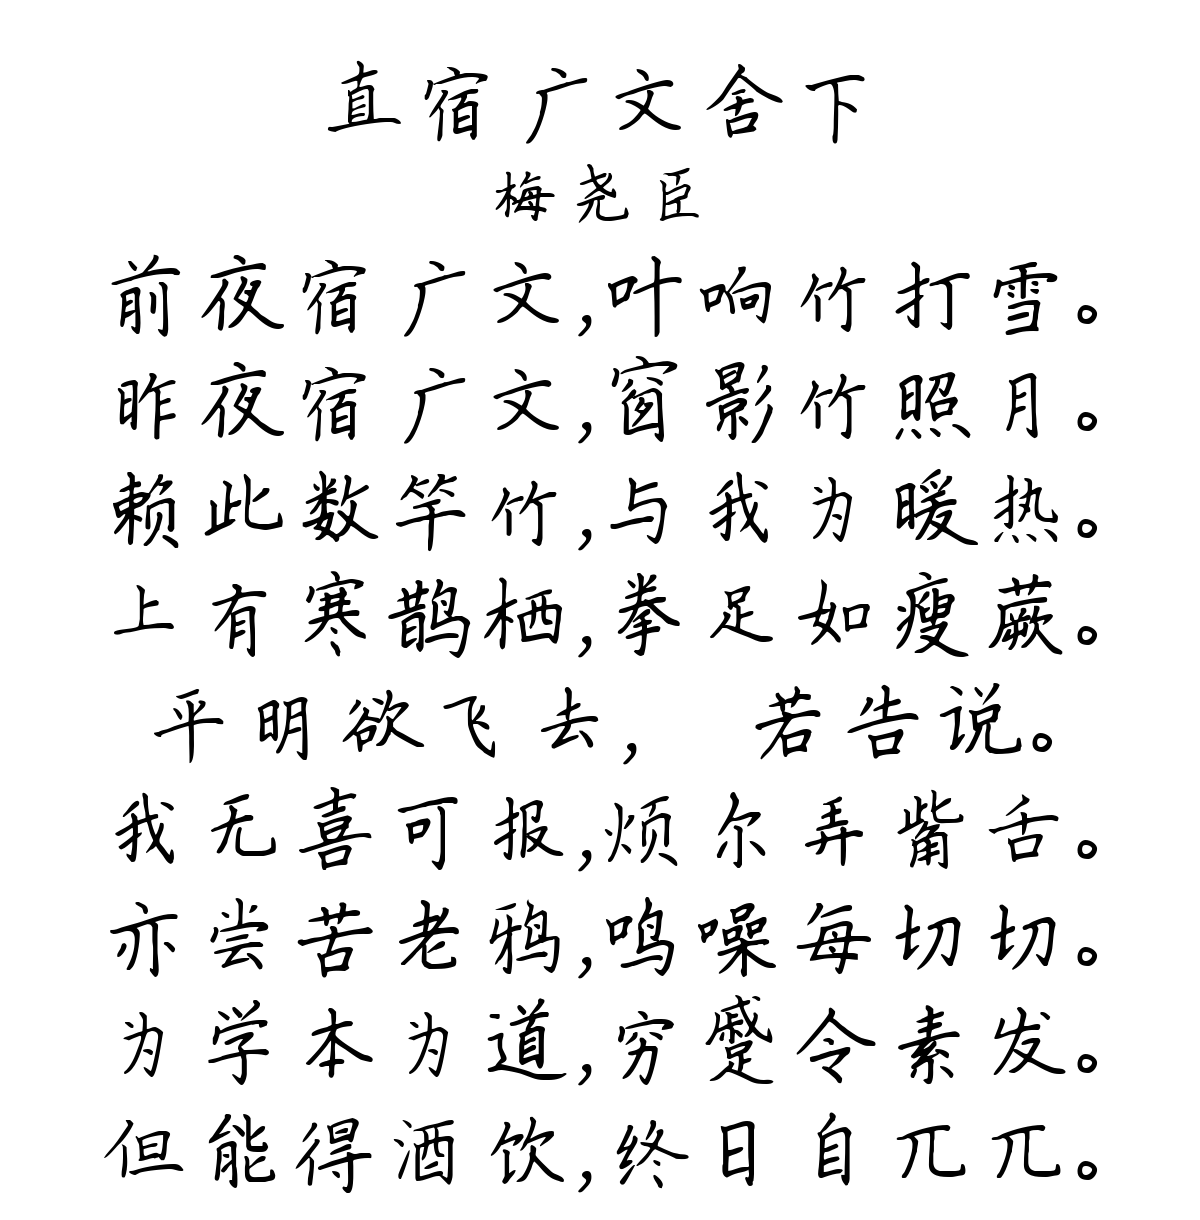 直宿广文舍下
梅尧臣
前夜宿广文,叶响竹打雪。
昨夜宿广文,窗影竹照月。
赖此数竿竹,与我为暖热。
上有寒鹊栖,拳足如瘦蕨。
平明欲飞去, 若告说。
我无喜可报,烦尔弄觜舌。
亦尝苦老鸦,鸣噪每切切。
为学本为道,穷蹙令素发。
但能得酒饮,终日自兀兀。